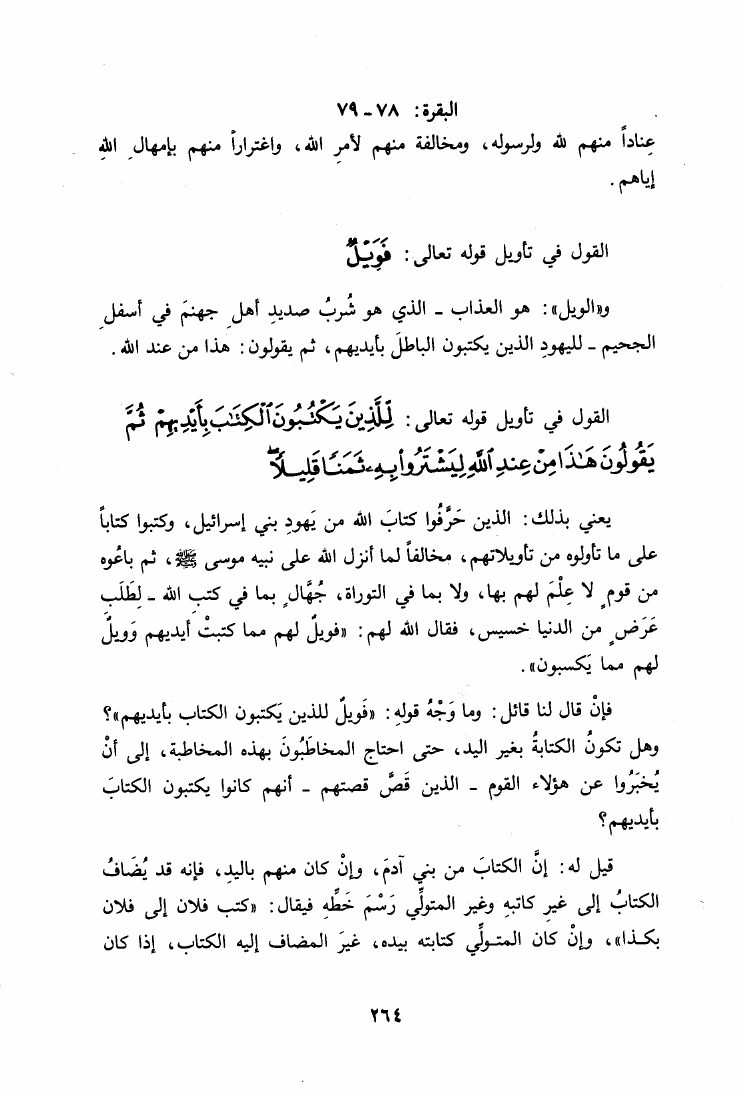 البقرة: ٧٨ ـ ٧٩
عِناداً منهم لله ولرسوله، ومخالفة منهم لأمرِ الله، واغتراراً منهم بإمهالِ اللهِ
إياهم.
القول في تأويل قوله تعالى: فَوَيْلٌ
و«الويل»: هو العذاب ـ الذي هو شُربُ صديدِ أهلِ جهنمَ في أسفلِ
الجحيم ـ لليهودِ الذين يكتبون الباطلَ بأيديهم، ثم يقولون: هذا من عند الله.
القول في تأويل قوله تعالى: لِّلَّذِينَ يَكْتُبُونَ ٱلْكِتَٰبَ بِأَيْدِيهِمْ ثُمَّ
يَقُولُونَ هَٰذَا مِنْ عِندِ ٱللَّهِ لِيَشْتَرُوا۟ بِهِۦ ثَمَنًا قَلِيلًاۖ
يعني بذلك: الذين حَرَّفُوا كتابَ الله من يَهودِ بني إسرائيل، وكتبوا كتاباً
على ما تأولوه من تأويلاتهم، مخالفاً لما أنزل الله على نبيه موسى ﷺ، ثم باعُوه
من قومٍ لا عِلْمَ لهم بها، ولا بما في التوراة، جُهَّالٍ بما في كتبِ الله ـ لِطَلَبِ
عَرَضٍ من الدنيا خسيس، فقال الله لهم: «فويلٌ لهم مما كتبتْ أيديهم وَويلٌ
لهم مما يَكسبون».
فإنْ قال لنا قائل: وما وَجْهُ قولِهِ: «فَويلٌ للذين يَكتبون الكتاب بأيديهم»؟
وهل تكونُ الكتابةُ بغير اليد، حتى احتاج المخاطَبُونَ بهذه المخاطبة، إلى أنْ
يُخبَرُوا عن هؤلاء القوم ـ الذين قَصَّ قصتهم ـ أنهم كانوا يكتبون الكتابَ
بأيديهم؟
قيل له: إنَّ الكتابَ من بني آدمَ، وإنْ كان منهم باليدِ، فإنه قد يُضَافُ
الكتابُ إلى غيرِ كاتبهِ وغير المتولِّي رَسْمَ خَطِّهِ فيقال: «كتب فلان إلى فلان
بكذا»، وإنْ كان المتولِّي كتابته بيده، غيرَ المضاف إليه الكتاب، إذا كان
٢٦٤